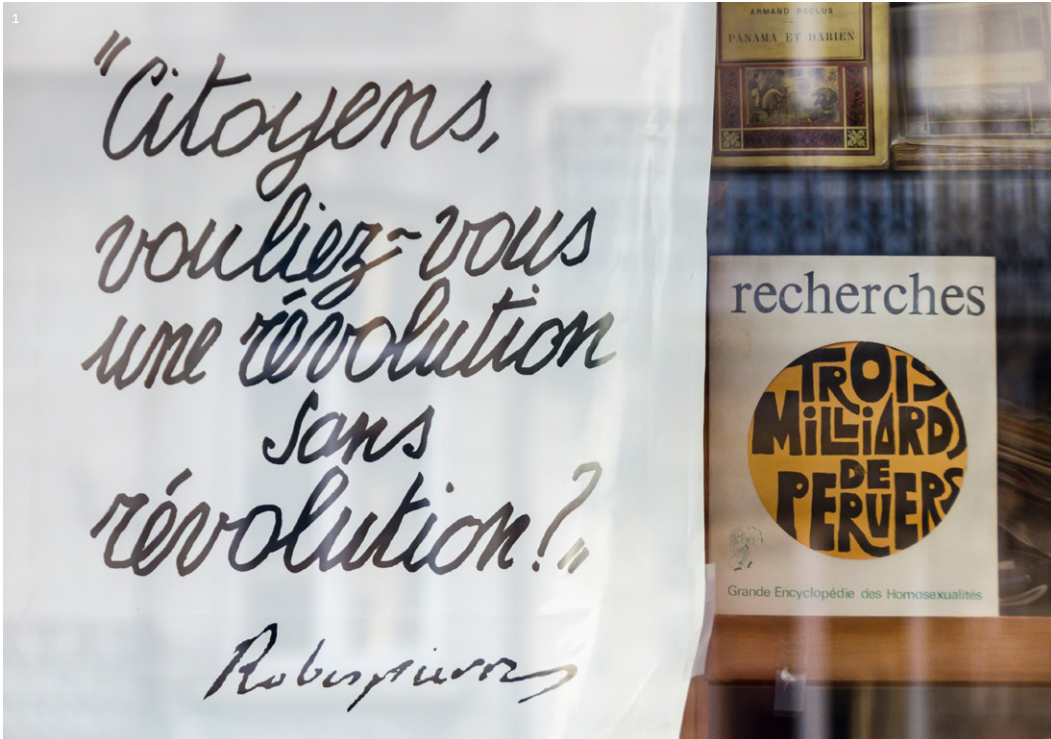 1
"Citoyens,
vouliez-vous
une révolution
sans
révolution?"
Robespierre
ARMAND RECLUS
PANAMA ET DARIEN
recherches
TROIS
MILLIARDS
DE
PERVERS
Grande Encyclopédie des Homosexualités